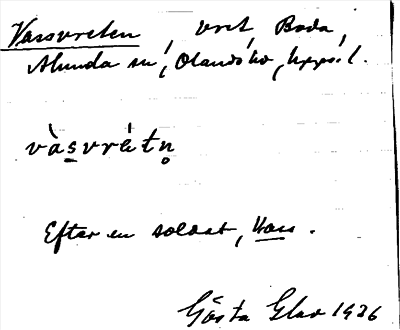 Vassvreten, vret, Boda,
Alunda sn, Olands hd, Upps. l.
vàsvrétn̥
Efter en soldat, Vass.
Gösta Glav 1926